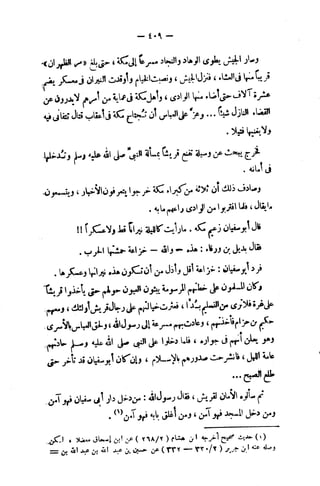 — ٤٠٩ —
وسار الجيش يطوى الوهاد والنجاد مسرعاً إلى مكة ، حتى بلغ «مر الظهران»
قريباً منها فى العشاء ، فنزل الجيش ، ونصبت الخيام وأوقدت النيران فى معسكر يضم
عشرة آلاف حتى أضاء منها الوادى ، وأهل مكة فى عماية من أمرهم لا يدرون عن
القضاء النازل شيئاً ... وعز على العباس أن تجتاح مكة فى أعقاب قتال تتفانى فيه
ولا يغنيها فتيلا .
فخرج يبحث عن وسيلة تقنع قريشاً بمسألة النبي صلى الله عليه وسلم وتدخلها
فى أمانه .
وصادف ذلك أن ثلاثة من كبراء مكة خرجوا يتعرفون الأخبار ، ويتسمعون
ما يقال ، فلما اقتربوا من الوادى راعهم ما به .
قال أبو سفيان زعيم مكة . ما رأيت كالليلة نيراناً قط ولا عسكراً !!
فقال بديل بن ورقاء : هذه — والله — خزاعة حمشتها الحرب .
فرد أبو سفيان : خزاعة أقل وأذل من أن تكون هذه نيرانها وعسكرها .
وكان المسلمون على خطتهم المرسومة يبثون العيون حولهم حتى يأخذوا قريشاً
على غرة فلا ترى من التسليم بداً ، فعثرت خيالتهم على رجال قريش أولئك ، ومعهم
حكيم بن حزام فأخذتهم ، وعادت بهم مسرعة إلى رسول الله ، ولحق العباس بالأسرى
وهو يعلن أنهم فى جواره ، فلما دخلوا على النبى صلى الله عليه وسلم حادثهم
عامة الليل ، فانشرحت صدورهم بالإسلام ، وإن كان أبو سفيان قد تأخر حتى
طلع الصبح ...
ثم سألوه الأمان لقريش ، فقال رسول الله : من دخل دار أبى سفيان فهو آمن
ومن دخل المسجد فهو آمن ، ومن أغلق بابه فهو آمن (١) .
(١) حديث صحيح أخرجه ابن هشام (٢٦٨/٢) عن ابن إسحاق معضلا ، لكن
وصله عنه ابن جرير (٣٢٠/٢ — ٣٣٢) عن حسين بن عبد الله بن عبد الله بن =